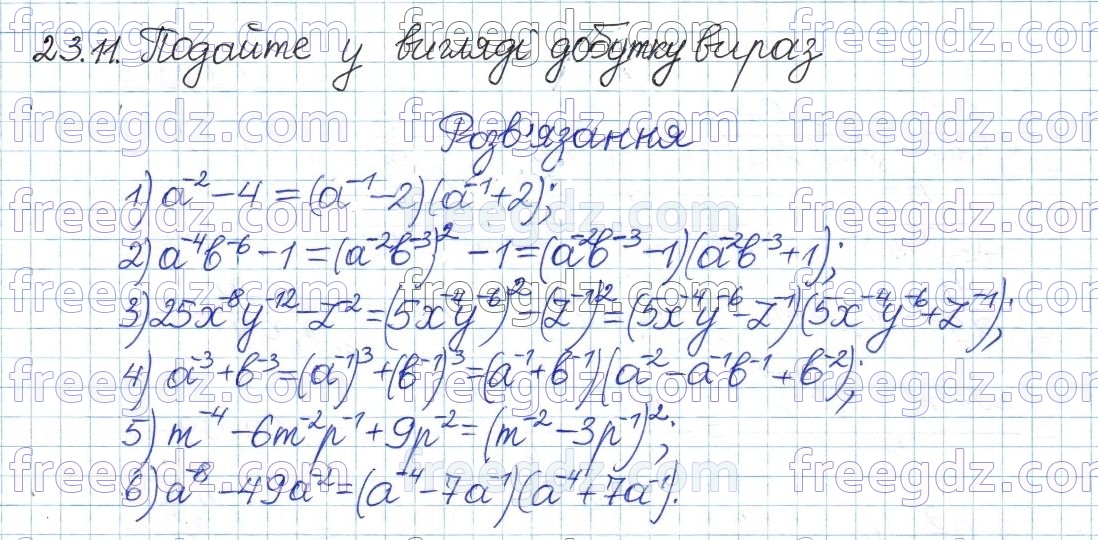 23.11. Подайте у вигляді добутку вираз
Розв'язання
1) a⁻² − 4 = (a⁻¹ − 2)(a⁻¹ + 2);
2) a⁻⁴b⁻⁶ − 1 = (a⁻²b⁻³)² − 1 = (a⁻²b⁻³ − 1)(a⁻²b⁻³ + 1);
3) 25x⁻⁸y⁻¹² − z⁻² = (5x⁻⁴y⁻⁶)² − (z⁻¹)² = (5x⁻⁴y⁻⁶ − z⁻¹)(5x⁻⁴y⁻⁶ + z⁻¹);
4) a⁻³ + b⁻³ = (a⁻¹)³ + (b⁻¹)³ = (a⁻¹ + b⁻¹)(a⁻² − a⁻¹b⁻¹ + b⁻²);
5) m⁻⁴ − 6m⁻²p⁻¹ + 9p⁻² = (m⁻² − 3p⁻¹)²;
6) a⁻⁸ − 49a⁻² = (a⁻⁴ − 7a⁻¹)(a⁻⁴ + 7a⁻¹).
freegdz.com